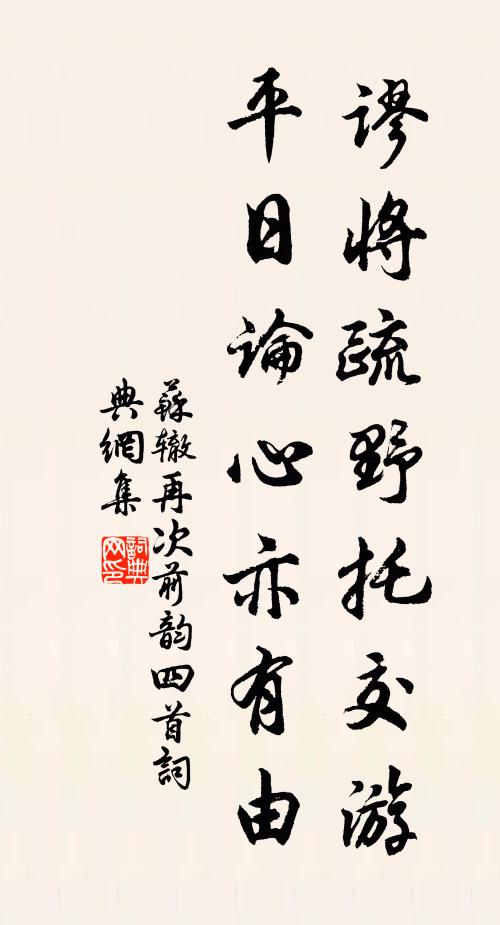 谬將疏野托交游
平日論心亦有由
蘇辙再次前韵四首詞
典網集
詞典
网印